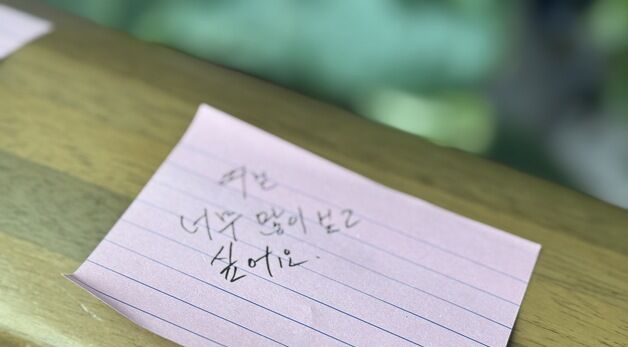 너무 많이 보고
싶어요.